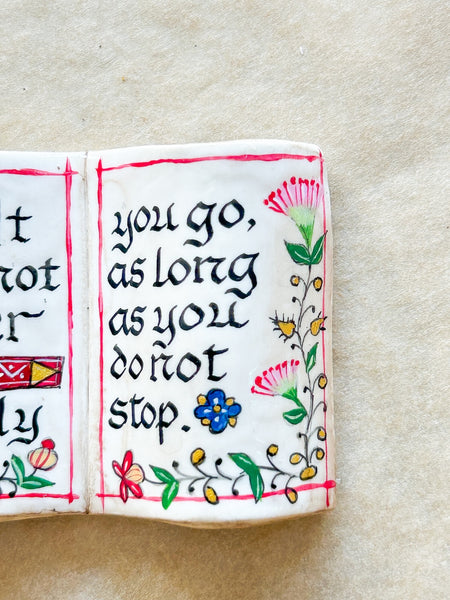 It
not
ly
you go,
as long
as you
do not
stop.